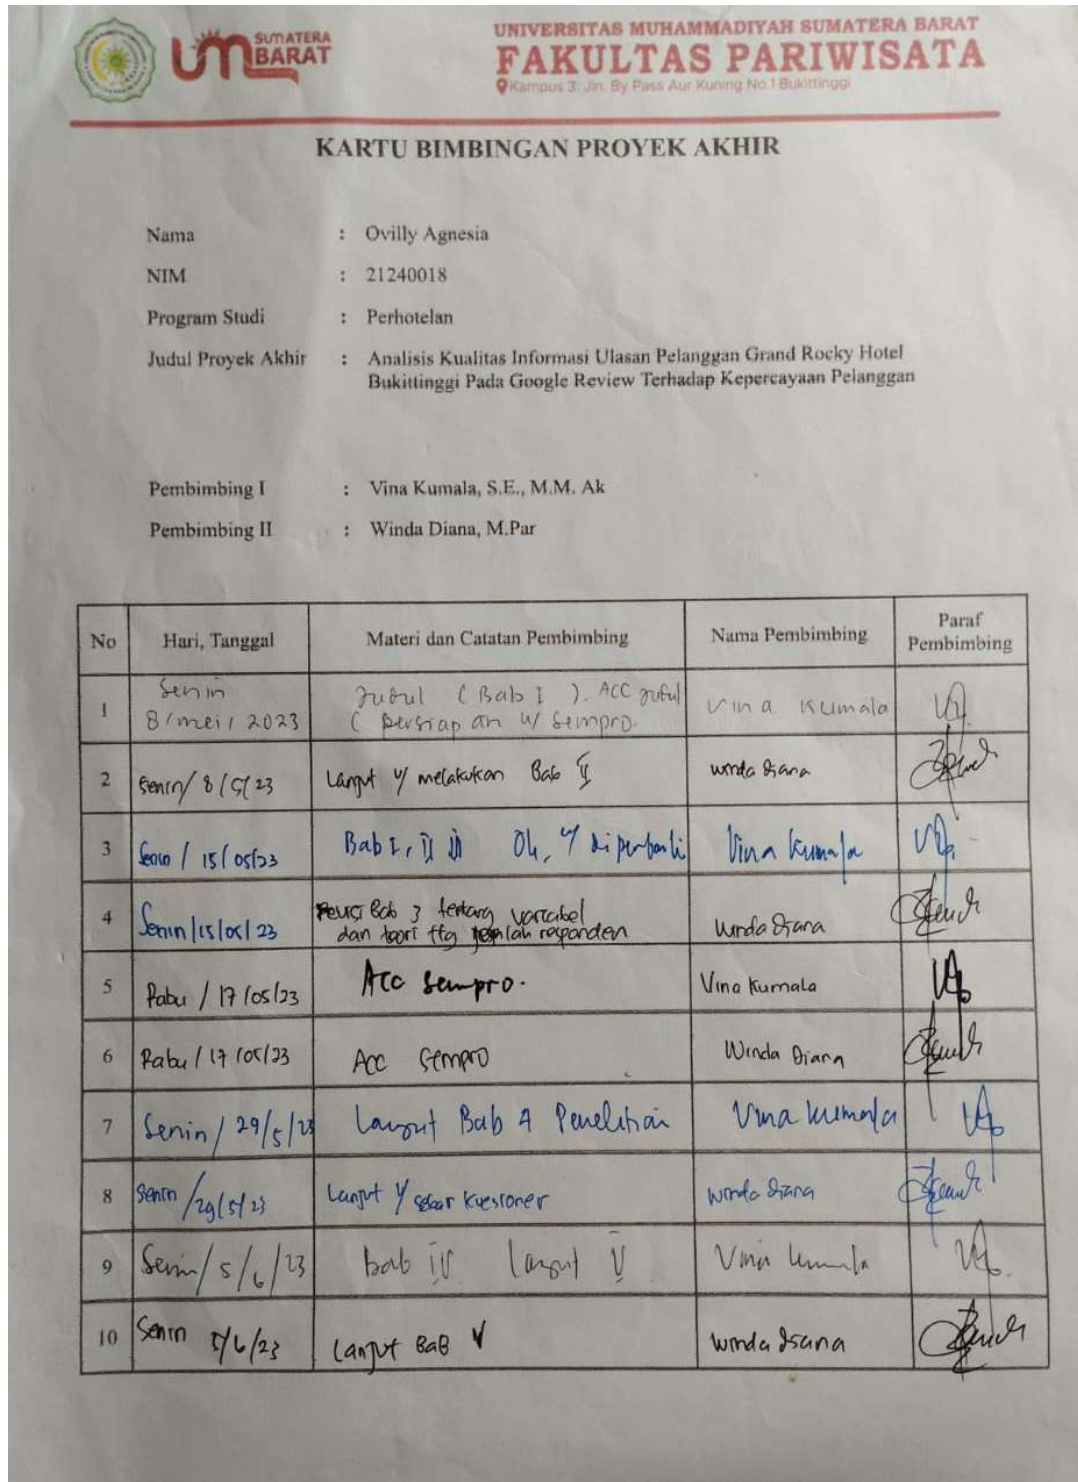 SUMATERA
UM BARAT
UNIVERSITAS MUHAMMADIYAH SUMATERA BARAT
FAKULTAS PARIWISATA
Kampus 3: Jln. By Pass Aur Kuning No.1 Bukittinggi
KARTU BIMBINGAN PROYEK AKHIR
Nama : Ovilly Agnesia
NIM : 21240018
Program Studi : Perhotelan
Judul Proyek Akhir : Analisis Kualitas Informasi Ulasan Pelanggan Grand Rocky Hotel
Bukittinggi Pada Google Review Terhadap Kepercayaan Pelanggan
Pembimbing I : Vina Kumala, S.E., M.M. Ak
Pembimbing II : Winda Diana, M.Par
No Hari, Tanggal Materi dan Catatan Pembimbing Nama Pembimbing Paraf Pembimbing
1 Senin 8/mei/2023 Judul (Bab I). ACC judul (persiapan u/ sempro. Vina Kumala
2 Senin/ 8/5/23 Lanjut u/ melakukan Bab II Winda Diana
3 Senin / 15/05/23 Bab I, II III Ok, u/ diperbaiki Vina Kumala
4 Senin/15/05/23 Revisi Bab 3 tentang variabel
dan teori ttg jumlah responden Winda Diana
5 Rabu / 17/05/23 Acc sempro. Vina Kumala
6 Rabu / 17/05/23 Acc sempro Winda Diana
7 Senin/ 29/5/23 Lanjut Bab 4 Penelitian Vina Kumala
8 Senin /29/5/23 Lanjut u/ sebar kuesioner Winda Diana
9 Senin/ 5/6/23 bab IV lanjut V Vina Kumala
10 Senin 5/6/23 Lanjut BaB V Winda Diana